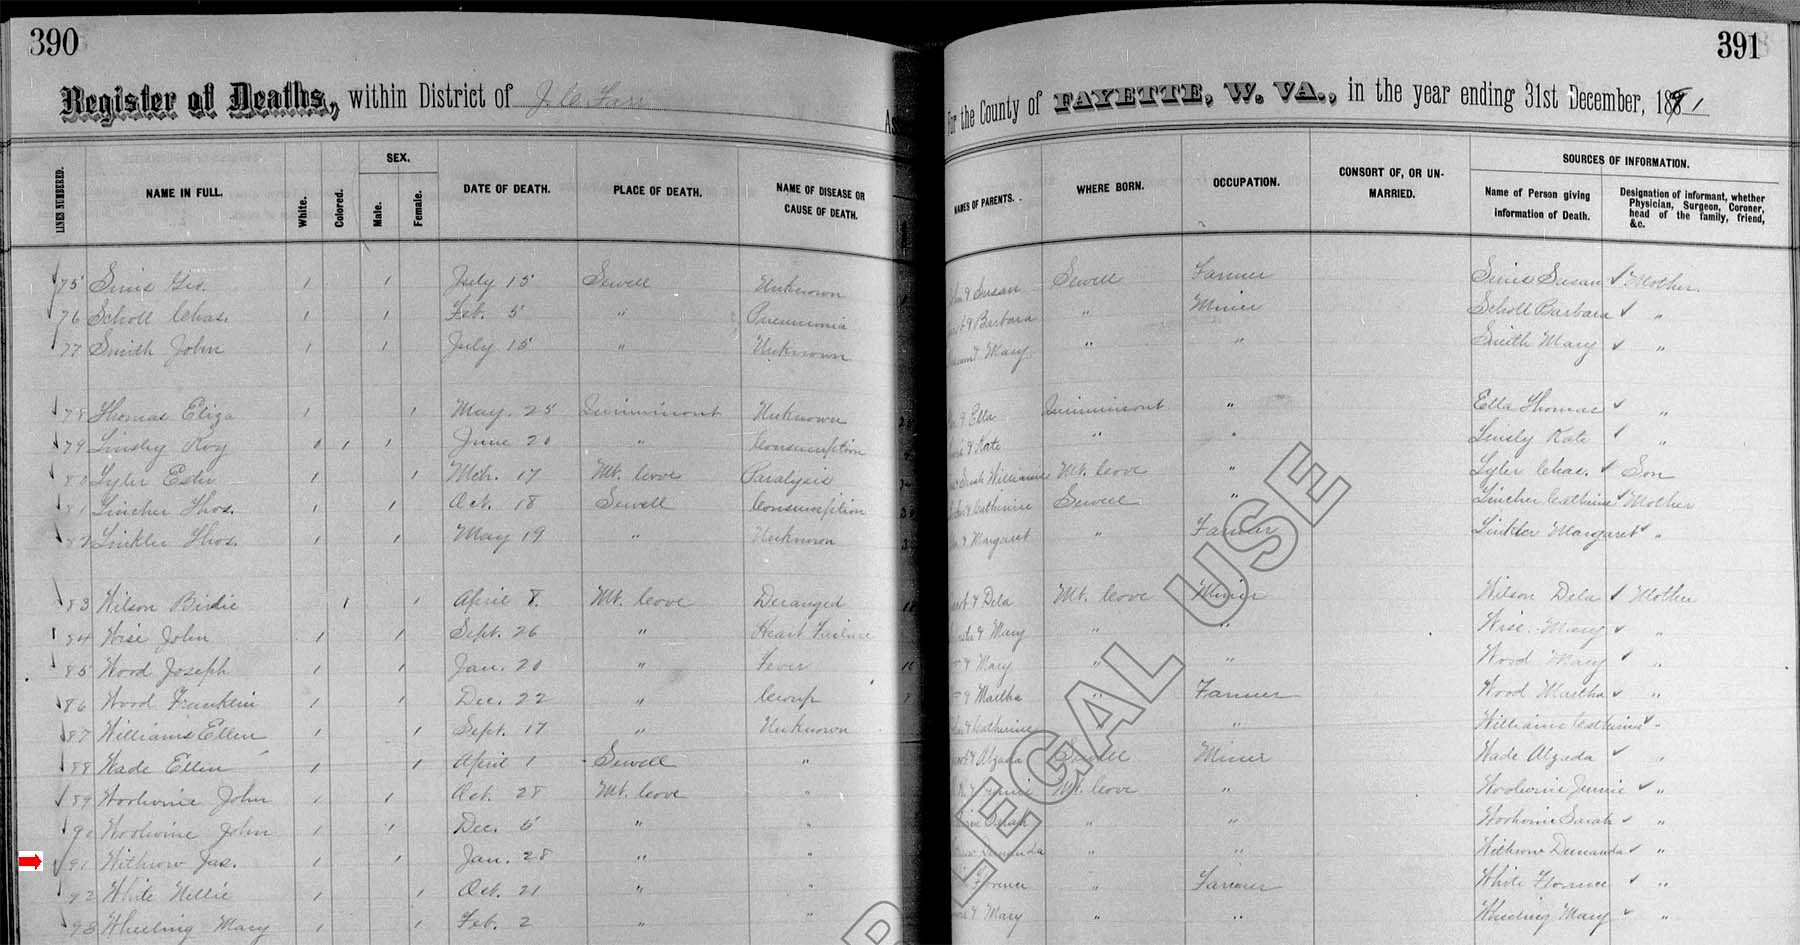 390
391
Register of Deaths, within District of J. C. Farr
For the County of FAYETTE, W. VA., in the year ending 31st December, 1891
LINES NUMBERED. NAME IN FULL. White. Colored. SEX. Male. Female. DATE OF DEATH. PLACE OF DEATH. NAME OF DISEASE OR CAUSE OF DEATH. NAMES OF PARENTS. WHERE BORN. OCCUPATION. CONSORT OF, OR UNMARRIED. SOURCES OF INFORMATION. Name of Person giving information of Death. Designation of informant, whether Physician, Surgeon, Coroner, head of the family, friend, &c.
75 Sims Geo. 1 1 July 15 Sewell Unknown & Susan Sewell Farmer Sims Susan Mother
76 Scholl Chas. 1 1 Feb. 5 " Pneumonia & Barbara " Miner Scholl Barbara "
77 Smith John 1 1 July 15 " Unknown & Mary " " Smith Mary "
78 Thomas Eliza 1 1 May. 25 Quinnimont Unknown & Ella Quinnimont " Ella Thomas "
79 Tinsley Roy 1 1 June 20 " Consumption & Kate " " Tinsly Kate "
80 Tyler Esta 1 1 Mch. 17 Mt. Cove Paralysis Williams Mt. Cove " Tyler Chas. Son
81 Tincher Thos. 1 1 Oct. 18 Sewell Consumption & Catherine Sewell " Tincher Catherine Mother
82 Tinkler Thos. 1 1 May 19 " Unknown & Margaret " Farmer Tinkler Margaret "
83 Wilson Birdie 1 1 April 8. Mt. Cove Deranged & Dela Mt. Cove Miner Wilson Dela Mother
84 Wise John 1 1 Sept. 26 " Heart Failure & Mary " " Wise Mary "
85 Wood Joseph 1 1 Jan. 20 " Fever & Mary " " Wood Mary "
86 Wood Franklin 1 1 Dec. 22 " Croup & Martha " Farmer Wood Martha "
87 Williams Ellen 1 1 Sept. 17 " Unknown & Catherine " Williams Catherine "
88 Wade Ellen 1 1 April 1 Sewell " & Alzada Sewell Miner Wade Alzada "
89 Woolwine John 1 1 Oct. 28 Mt. Cove " & Jennie Mt. Cove " Woolwine Jennie "
90 Woolwine John 1 1 Dec. 5 " " Sarah " " Woolwine Sarah "
91 Withrow Jas. 1 1 Jan. 28 " " " " Withrow "
92 White Nellie 1 1 Oct. 21 " " Florence " Farmer White Florence "
93 Wheeling Mary 1 1 Feb. 2 " " & Mary " " Wheeling Mary "
LEGAL USE